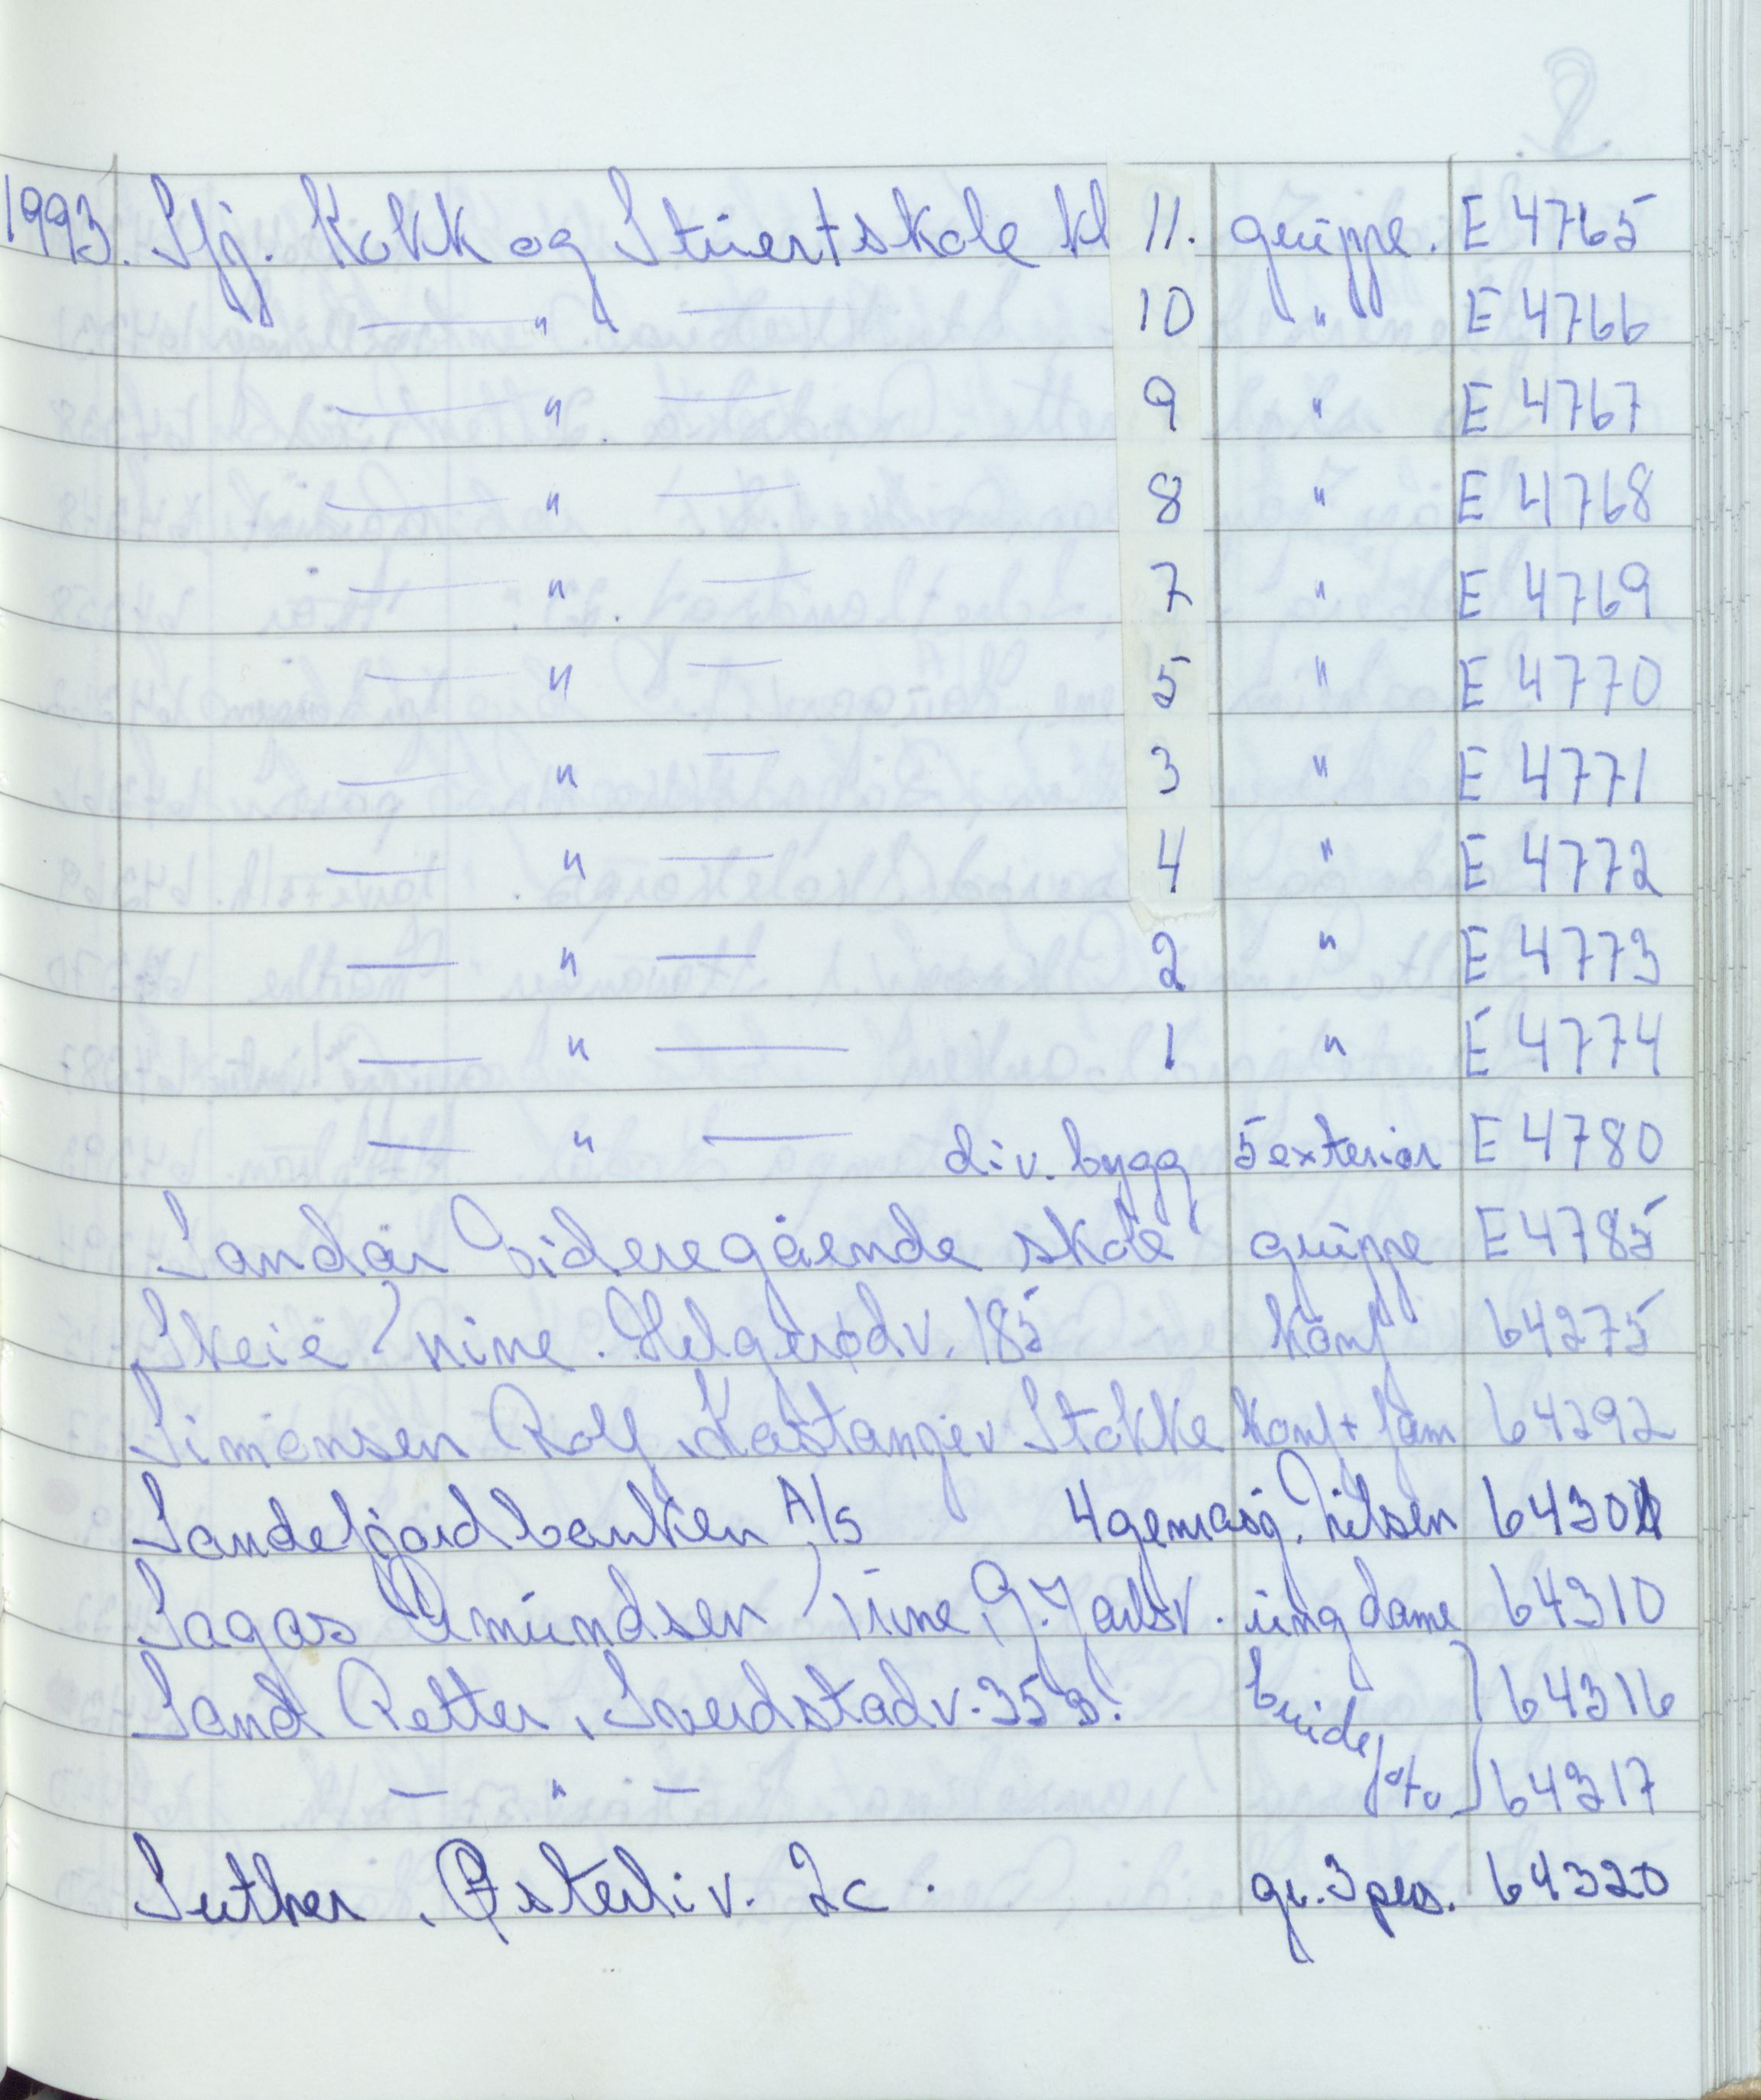 1993. Sfj. Kokk og Stuertskole kl 11. gruppe. E 4765
— " — 10 " E 4766
— " — 9 " E 4767
— " — 8 " E 4768
— " — 7 " E 4769
— " — 5 " E 4770
— " — 3 " E 4771
— " — 4 " E 4772
— " — 2 " E 4773
— " — 1 " E 4774
— " — div. bygg 5 exteriør E 4780
Sandar Videregående skole gruppe E 4785
Skeie Nine. Helgerødv. 185 Konf 64275
Simonsen Rolf, Stokke Konf + fam 64292
Sandefjordbanken A/S 4 Nilsen 6430
Sagas Amundsen ung dame 64310
Sand Petter, 35 B. brude 64316
— " — foto 64317
Østerliv. 2c. gr. 3 pers. 64320